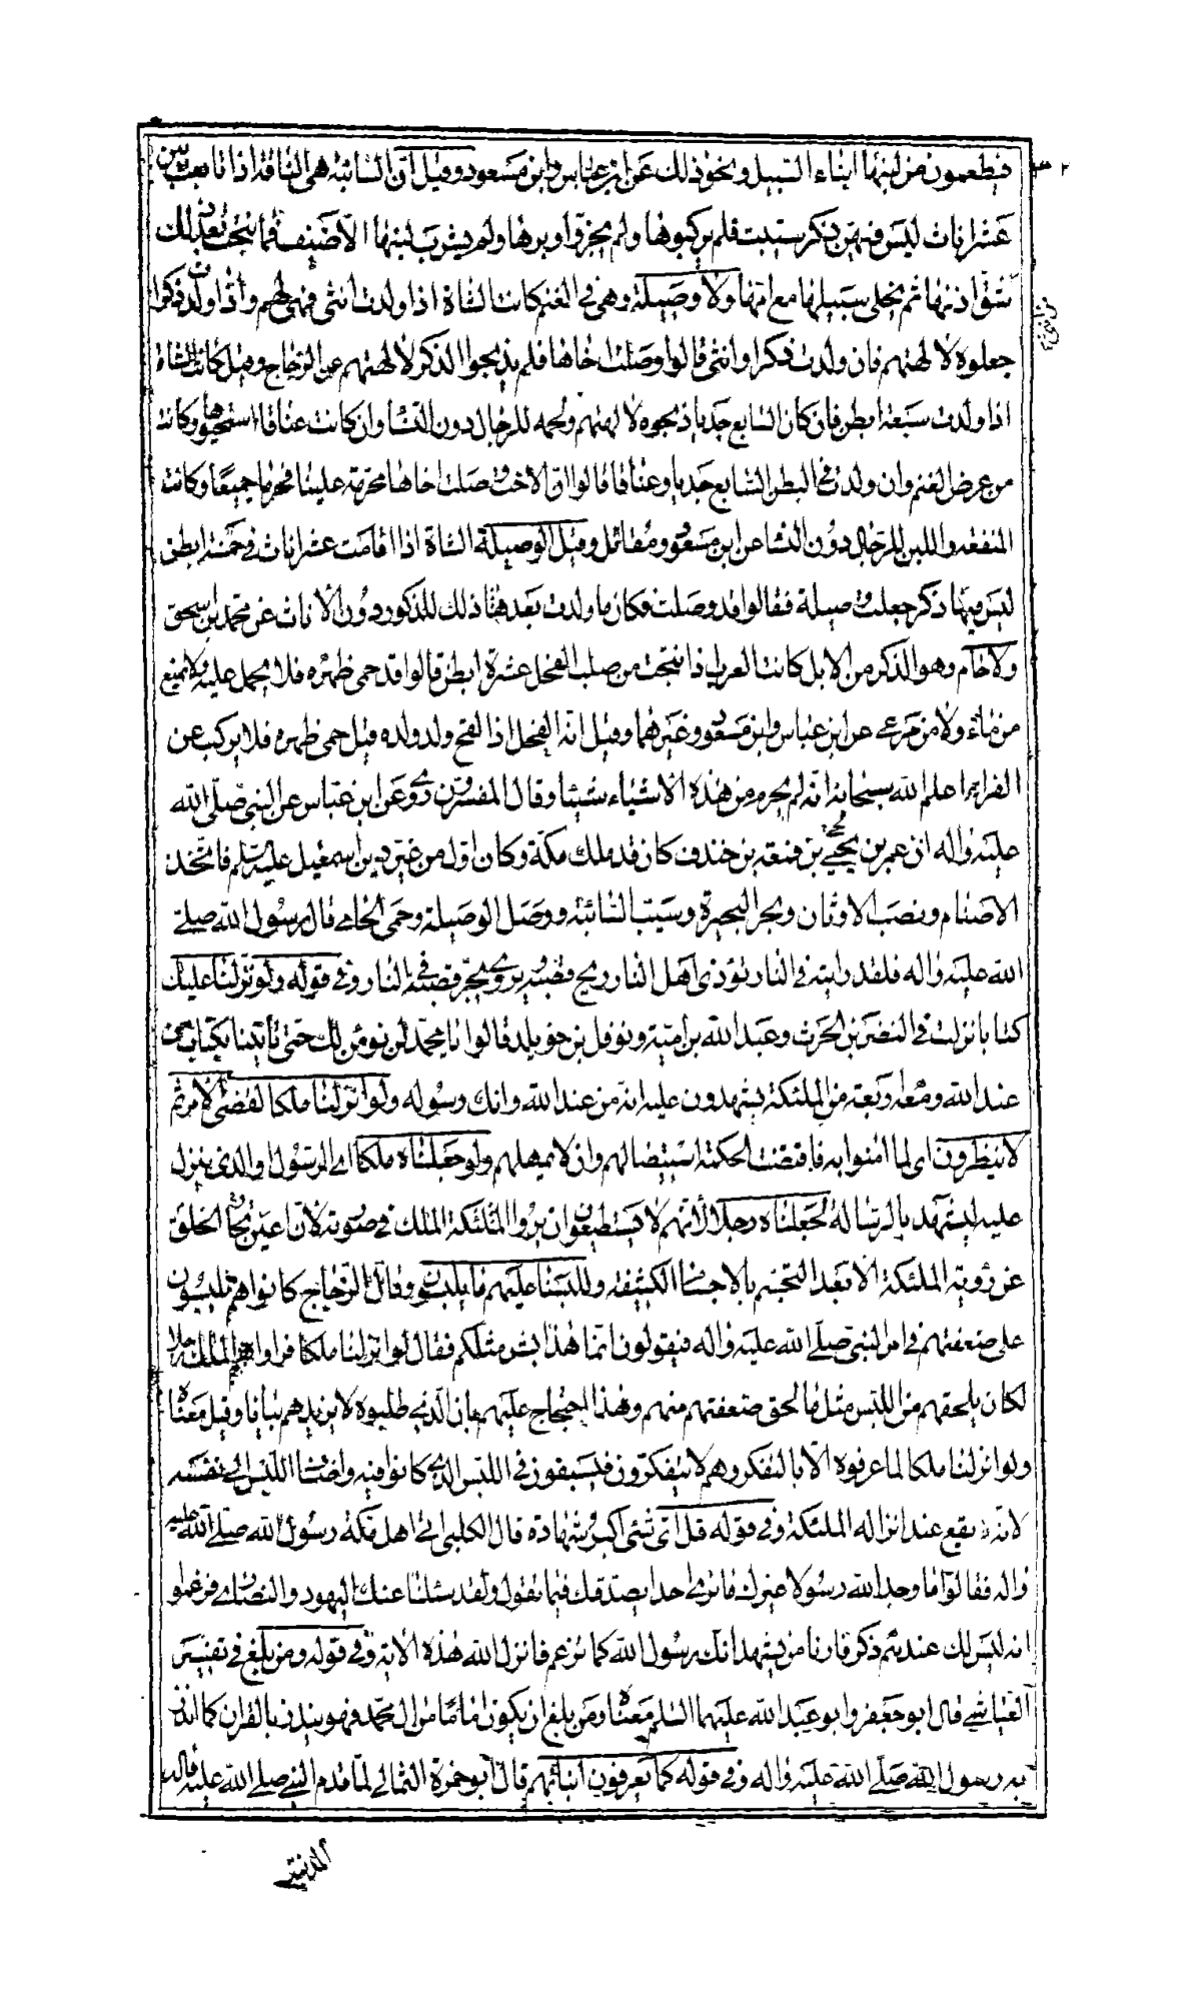 فيطعمون من لبنها ابناء السبيل ونحو ذلك عن ابن عباس وابن مسعود وقيل ان السائبة هى الناقة اذا تابعت بين
عشر اناث ليس فيهن ذكر سيبت فلم يركبوها ولم يجزوا وبرها ولم يشرب لبنها الا ضيف فما نتجت بعد ذلك
شق اذنها ثم يخلى سبيلها مع امها ولا وصيلة وهى فى الغنم كانت الشاة اذا ولدت انثى فهى لهم واذا ولدت ذكرا
جعلوه لالهتهم فان ولدت ذكرا وانثى قالوا وصلت اخاها فلم يذبحوا الذكر لالهتهم عن الزجاج وقيل كانت الشاة
اذا ولدت سبعة ابطن فان كان السابع جديا ذبحوه لالهتهم ولحمه للرجال دون النساء وان كانت عناقا استحيوها وكانت
من عرض الغنم وان ولدت فى البطن السابع جديا وعناقا قالوا ان الاخت وصلت اخاها محرمة علينا فحرما جميعا وكانت
المنفعة واللبن للرجال دون النساء عن ابن مسعود ومقاتل وقيل الوصيلة الشاة اذا اتأمت عشر اناث فى خمسة ابطن
ليس فيها ذكر جعلت وصيلة فقالوا قد وصلت فكان ما ولدت بعد هذا ذلك للذكور دون الاناث عن محمد بن اسحق
ولا حام وهو الذكر من الابل كانت العرب اذا نتجت من صلب الفحل عشرة ابطن قالوا قد حمى ظهره فلا يحمل عليه ولا يمنع
من ماء ولا من مرعى عن ابن عباس وابن مسعود وغيرهما وقيل انه الفحل اذا لقح ولد ولده قيل حمى ظهره فلا يركب عن
الفراء اعلم الله سبحانه انه لم يحرم من هذه الاشياء شيئا وقال المفسرون روى عن ابن عباس عن النبى صلى الله
عليه واله ان عمرو بن لحى بن قمعة بن خندف كان قد ملك مكة وكان اول من غير دين اسمعيل عليه السلم فاتخذ
الاصنام ونصب الاوثان وبحر البحيرة وسيب السائبة ووصل الوصيلة وحمى الحامى قال رسول الله صلى
الله عليه واله فلقد رايته فى النار تؤذى اهل النار ريح قصبه ويروى يجر قصبه فى النار وفى قوله ولو نزلنا عليك
كتابا نزلت فى النضر بن الحرث وعبد الله بن امية ونوفل بن خويلد قالوا يا محمد لن نؤمن لك حتى تأتينا بكتاب من
عند الله ومعه اربعة من الملئكة يشهدون عليه انه من عند الله وانك رسوله ولو انزلنا ملكا لقضى الامر ثم
لا ينظرون اى لما امنوا به فاقتضت الحكمة استيصالهم وان لا يمهلهم ولو جعلناه ملكا اى الرسول والذى ينزل
عليه ليشهد بالرسالة لجعلناه رجلا لانهم لا يستطيعون ان يروا الملئكة الملك فى صورته لان اعين الخلق تحار
عن رؤية الملئكة الا بعد التجسم بالاجسام الكثيفة وللبسنا عليهم ما يلبسون وقال الزجاج كانوا هم يلبسون
على ضعفتهم فى امر النبى صلى الله عليه واله فيقولون انما هذا بشر مثلكم فقال لو انزلنا ملكا فراوا هم الملك رجلا
لكان يلحقهم من اللبس مثل ما لحق ضعفتهم منهم وهذا احتجاج عليهم بان الذى طلبوه لا يزيدهم بيانا وقيل معناه
ولو انزلنا ملكا لما عرفوه الا بالتفكر وهم لا يتفكرون فيبقون فى اللبس الذى كانوا فيه واضاف اللبس الى نفسه
لانه يقع عند انزاله الملئكة وفى قوله قل اى شئ اكبر شهادة قال الكلبى اتى اهل مكة رسول الله صلى الله عليه
واله فقالوا ما وجد الله رسولا غيرك ما نرى احدا يصدقك فيما تقول ولقد سئلنا عنك اليهود والنصارى فزعموا
انه ليس لك عندهم ذكر فارنا من يشهد انك رسول الله كما تزعم فانزل الله هذه الاية وفى قوله ومن بلغ فى تفسير
العياشى قال ابو جعفر وابو عبد الله عليهما السلم معناه ومن بلغ ان يكون اماما من ال محمد فهو ينذر بالقران كما انذر
به رسول الله صلى الله عليه واله وفى قوله كما يعرفون ابنائهم قال ابو حمزة الثمالى لما قدم النبى صلى الله عليه واله
المدينة